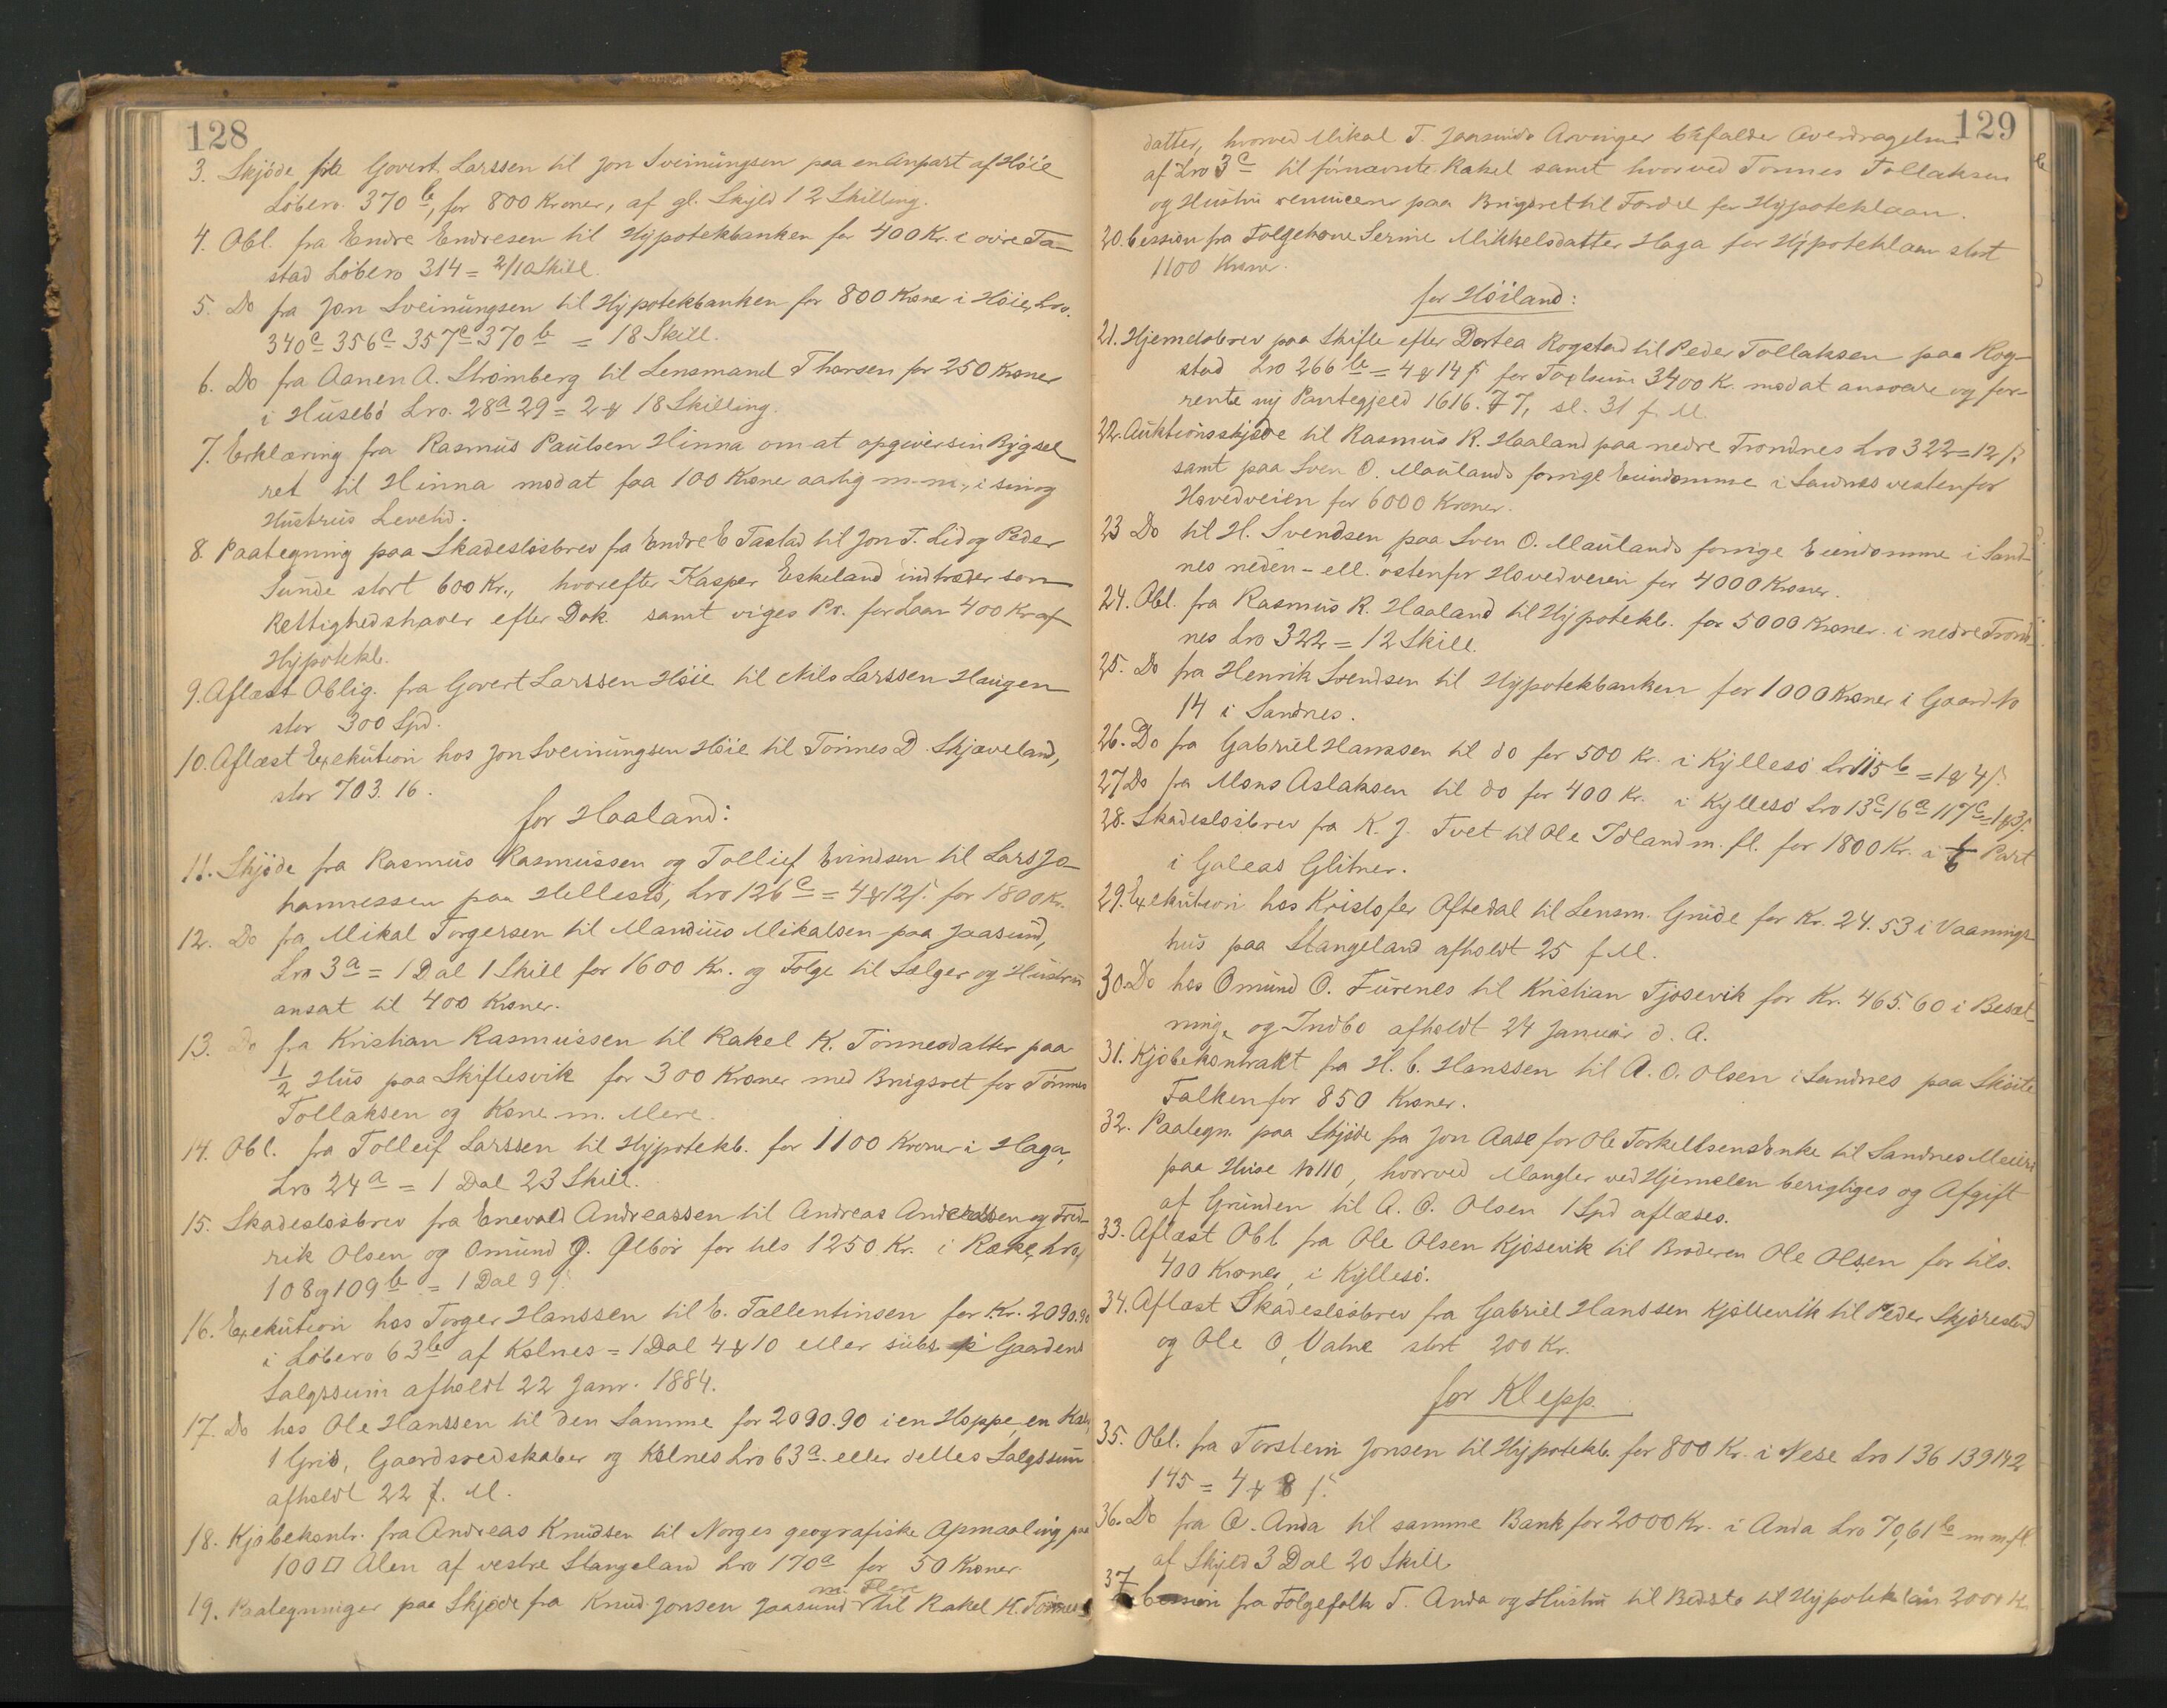 128
3. Skjöde fra Govert Larssen til Jon Sveinungsen paa en Anpart af Höie
Löbero. 370 b, for 800 Kroner, af gl. Skyld 12 Skilling.
4. Obl. fra Endre Endresen til Hypotekbanken for 400 Kr. i övre Ta-
stad Löbero 314 = 2/10 Skill.
5. Do fra Jon Sveinungsen til Hypotekbanken for 800 Krone i Höie, Lro.
340 c 356 c 357 c 370 b = 18 Skill.
6. Do fra Aanen A. Strömberg til Lensmand Thorsen for 250 Kroner
i Husebö Lro. 28 a 29 = 2 18 Skilling.
7. Erklæring fra Rasmus Paulsen Hinna om at opgive sin Bygsel
ret til Hinna modat faa 100 Krone aarlig m.m., i sin og
Hustrus Levetid.
8. Paategning paa Skadeslösbrev fra Endre E Tastad til Jon T. Lid og Peder
Sunde stort 600 Kr., hvorefter Kasper Eskeland indtræder som
Rettighedshaver efter Dok. samt viges Pr. for Laan 400 Kr af
Hypotekb.
9. Aflæst Oblig. fra Govert Larssen Höie til Nils Larssen Haugen
stor 300 Spd.
10. Aflæst Exekution hos Jon Sveinungsen Höie til Tönnes D. Skjæveland,
stor 703.16.
for Haaland:
11. Skjöde fra Rasmus Rasmussen og Tollief Evindsen til Lars Jo-
hannessen paa Hellestö, Lro 126 c = 4 12 for 1800 Kr.
12. Do fra Mikal Torgersen til Mandius Mikalsen paa Jaasund,
Lro 3 a = 1 Dal 1 Skill for 1600 Kr. og Folge til Sælger og Hustru
ansat til 400 Kroner.
13. Do fra Kristian Rasmussen til Rakel K. Tönnesdatter paa
1/2 Hus paa Skiftesvik for 300 Kroner med Brugsret for Tönnes
Tollaksen og Kone m. Mere.
14. Obl. fra Tolleif Larssen til Hypotekb. for 1100 Kroner i Haga,
Lro 24 a = 1 Dal 23 Skill.
15. Skadeslösbrev fra Enevold Andreassen til Andreas Andreassen og Fred-
rik Olsen og Omund G. Ølbör for tils 1250 Kr. i Ræke, Lro,
108 og 109 b = 1 Dal 9
16. Exekution hos Torger Hanssen til E. Tallentinsen for Kr. 2090.90
i Löbero 63 b af Kolnes = 1 Dal 4 10 eller subs. Gaardens
Salgssum afholdt 22 Janr. 1884.
17. Do hos Ole Hanssen til den Samme for 2090.90 i en Hoppe, en Kalv,
1 Gris, Gaardsredskaber og Kolnes Lro 63 a eller delles Salgssum
afholdt 22 f. M.
18. Kjöbekontr. fra Andreas Knudsen til Norges geografiske Opmaaling paa
100 □ Alen af vestre Stangeland Lro 170 a for 50 Kroner.
m. Flere
19. Paategninger paa Skjöde fra Knud Jonsen Jaasund til Rakel K. Tönnes
129
datter, hvorved Mikal T. Jaasunds Arvinger bifalder Overdragelsen
af Lro 3 c til förnævnte Rakel samt hvorved Tönnes Tollaksen
og Hustru renuncerer paa Brugsret til Fordel for Hypoteklaan.
20. Cession fra Folgekone Serine Mikkelsdatter Haga for Hypoteklaan stort
1100 Kroner.
for Höiland:
21. Hjemelsbrev paa Skifte efter Dortea Rogstad til Peder Tollaksen paa Rog-
stad Lro 266 b = 4 14 for Taxtsum 3400 K. modat ansvare og for-
rente ny Pantegjeld 1616.77, sl. 31 f. M.
22. Auktionsskjöde til Rasmus R. Haaland paa nedre Trondnes Lro 322 = 12
samt paa Sven O. Maulands forrige Eiendomme i Sandnes vestenfor
Hovedveien for 6000 Kroner.
23 Do til H. Svendsen paa Sven O. Maulands forrige Eiendomme i Sand-
nes neden- ell. östenfor Hovedveien for 4000 Kroner.
24. Obl. fra Rasmus R. Haaland til Hypotekb. for 5000 Kroner i nedre Trond-
nes Lro 322 = 12 Skill.
25. Do fra Henrik Svendsen til Hypotekbanken for 1000 Kroner i Gaard No
14 i Sandnes.
26. Do fra Gabriel Hanssen til do for 500 Kr. i Kyllesö Lro 115 b = 1 4
27 Do fra Mons Aslaksen til do for 400 Kr. i Kyllesö Lro 13 c 16 a 117 c = 1 3
28. Skadeslösbrev fra K. J. Tvet til Ole Töland m. fl. for 1800 Kr. i 1/6 Part
i Galeas Glitner.
29. Exekution hos Kristofer Aftedal til Lensm. Grude for Kr. 24.53 i Vaanings-
hus paa Stangeland afholdt 25 f M.
30. Do hos Omund O. Furenes til Kristian Tjosevik for Kr. 465.60 i Besæt-
ning og Indbo afholdt 24 Januar d. A.
31. Kjöbekontrakt fra H. C. Hanssen til A. O. Olsen i Sandnes paa Sköite
Falken for 850 Kroner.
32. Paategn. paa Skjöde fra Jon Aase for Ole Torkellsens Enke til Sandnes Meieri
paa Huse No 110, hvorved Mangler ved Hjemelen berigtiges og Afgift
af Grunden til A. O. Olsen 1 Spd aflæses.
33. Aflæst Obl. fra Ole Olsen Kjosevik til Broderen Ole Olsen for tils.
400 Kroner, i Kyllesö.
34. Aflæst Skadeslösbrev fra Gabriel Hanssen Kjöllevik til Peder Skjörestad
og Ole O, Vatne stort 200 Kr.
for Klepp.
35. Obl. fra Torstein Jonsen til Hypotekb. for 800 Kr. i Nese Lro 136 139 142
145 = 4 8
36. Do fra O. Anda til samme Bank for 2000 Kr. i Anda Lro 70,61 b m m fl.
af Skyld 3 Dal 20 Skill.
37 fra Folgefolk T. Anda og Hustru til Bedste til Hypoteklån 2000 Kr.